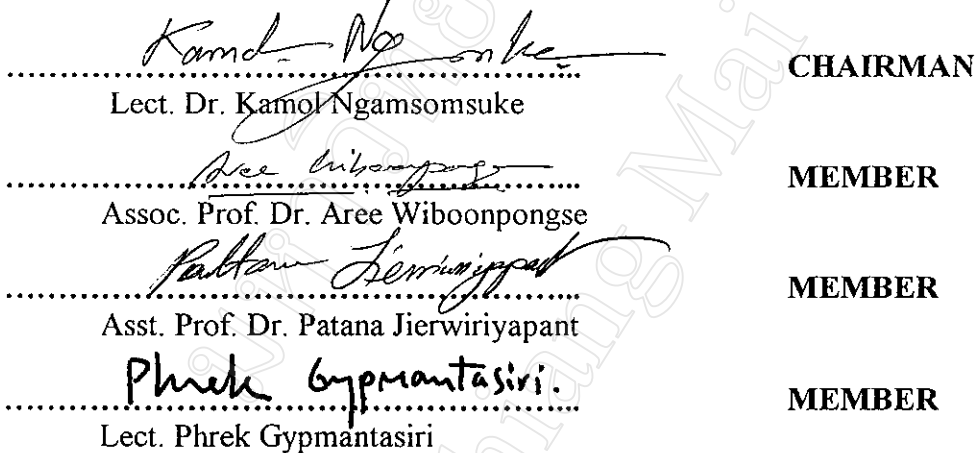 Kamol Ngamsomsuke
CHAIRMAN
Lect. Dr. Kamol Ngamsomsuke
Aree Wiboonpongse
MEMBER
Assoc. Prof. Dr. Aree Wiboonpongse
MEMBER
Asst. Prof. Dr. Patana Jierwiriyapant
Phrek Gypmantasiri.
MEMBER
Lect. Phrek Gypmantasiri